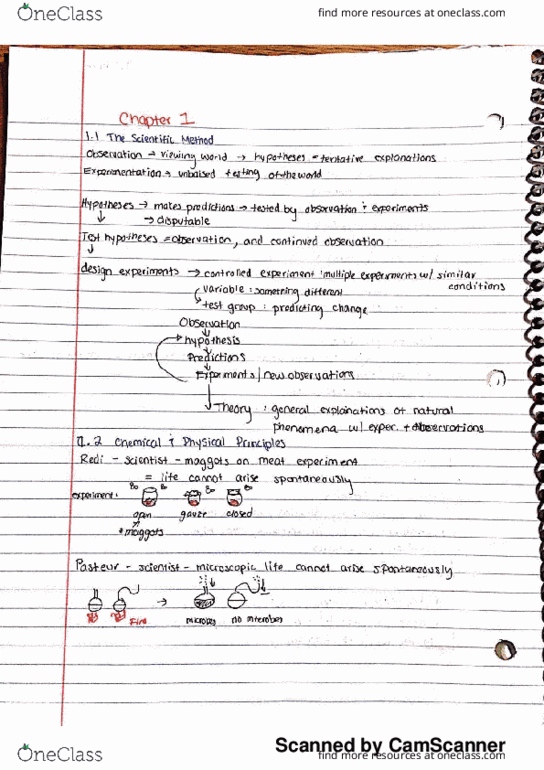 OneClass
find more resources at oneclass.com
Chapter 1
1.1 The Scientific Method
Observation → viewing world → hypotheses = tentative explanations
Experimentation → unbaised testing of the world
Hypotheses → makes predictions → tested by observation + experiments
→ disputable
Test hypotheses = observation, and continued observation
design experiments → controlled experiment : multiple experiments w/ similar
conditions
variable : something different
test group : predicting change
Observation
hypothesis
Predictions
Experiments / new observations
Theory : general explainations of natural
phenomena w/ exper. + observations
1.2 Chemical + Physical Principles
Redi - scientist - maggots on meat experiment
= life cannot arise spontaneously
experiment :
open gauze closed
* maggots
Pasteur - scientist - microscopic life cannot arise spontaneously
→
Fire microbes no microbes
Scanned by CamScanner
OneClass
find more resources at oneclass.com